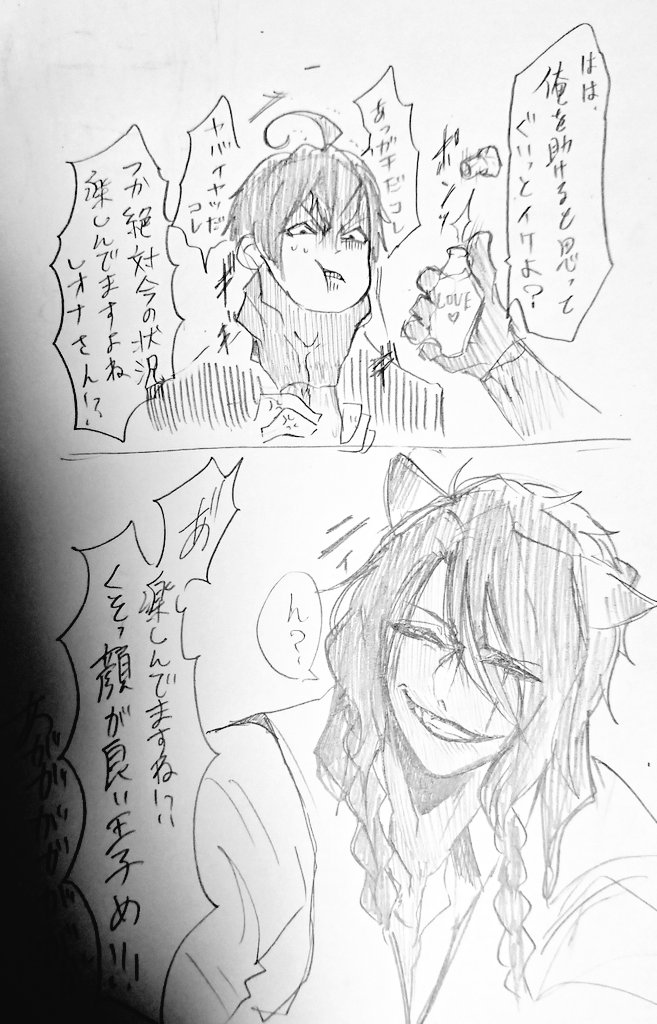 はは、
俺を助けると思って
ぐいっとイケよ?
ポンッ
LOVE♡
あっガチだコレ
ヤバイヤツだ
コレ
つか絶対今の状況
楽しんでますよね
レオナさん!?
ギギ
ん?
あ゛
楽しんでますね!?
くそっ顔が良い王子め!!!